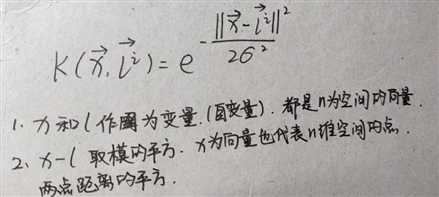 K(x⃗, l⃗ⁱ) = e^{-\frac{||x⃗-l⃗ⁱ||²}{2σ²}}
1. x和l作圆为变量.(自变量). 都是n为空间的向量.
2. x-l 取模的平方. x为向量也代表n维空间的点.
两点距离的平方.